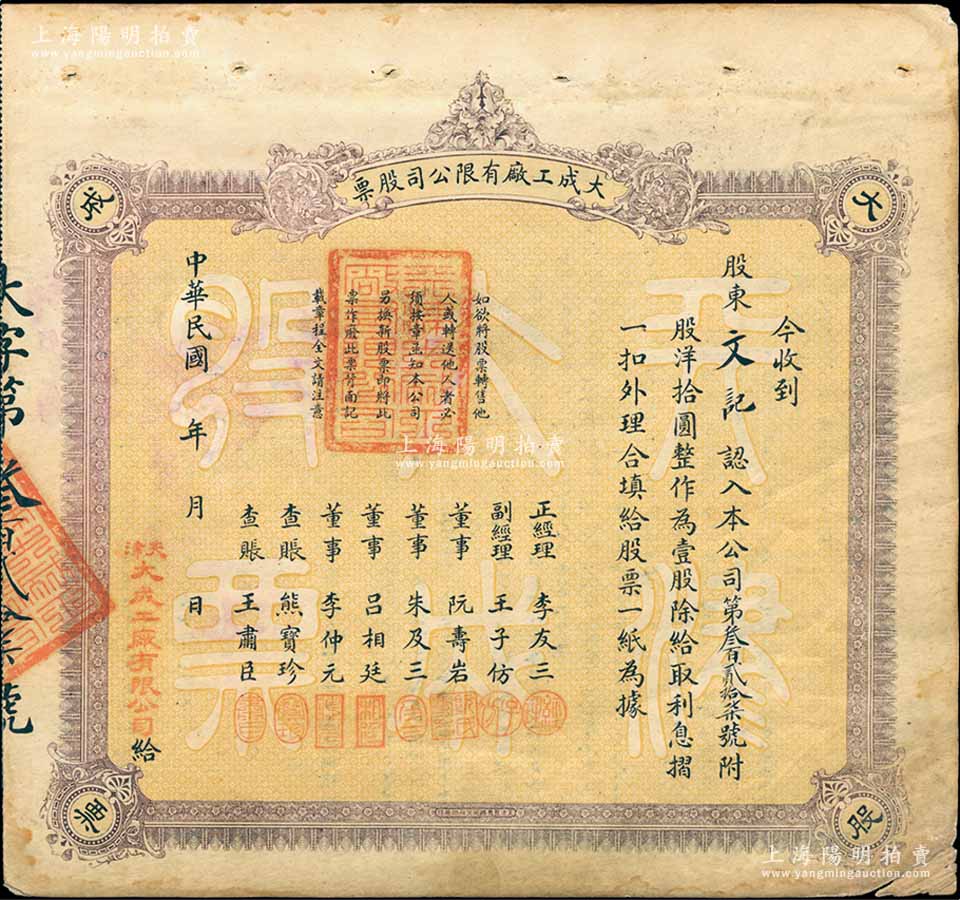 上海陽明拍賣
www.yangmingauction.com
上海陽明拍賣
www.yangmingauction.com
大成工廠有限公司股票
大
成
股
票
今收到
股東文記認入本公司第叁百貳拾柒號附
股洋拾圓整作為壹股除給取利息摺
一扣外理合填給股票一紙為據
如欲將股票轉售他
人或轉送他人者必
須按章函知本公司
另換新股票即將此
票作廢此票背面記
載章程全文請注意
正經理 李友三
副經理 王子仿
董事 阮壽岩
董事 朱及三
董事 呂相廷
董事 李仲元
查賬 熊寶珍
查賬 王肅臣
中華民國 年 月 日
天津大成工廠有限公司給
大字第叁百貳拾柒號
上海陽明拍賣
www.yangmingauction.com
上海陽明拍賣
www.yangmingauction.com